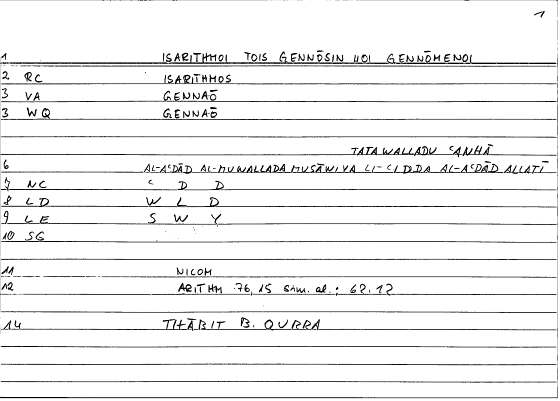 1
1 ISARITHMOI TOIS GENNŌSIN HOI GENNŌMENOI
2 RC ISARITHMOS
3 VA GENNAŌ
3 WQ GENNAŌ
TATAWALLADU ʿANHĀ
6 AL-AʿDĀD AL-MUWALLADA MUSĀWIYA LI-ʿIDDA AL-AʿDĀD ALLATĪ
7 NC ʿ D D
8 LD W L D
9 LE S W Y
10 SG
11 NICOM
12 ARITHM 76,15 al.; 62.12
14 THĀBIT B. QURRA